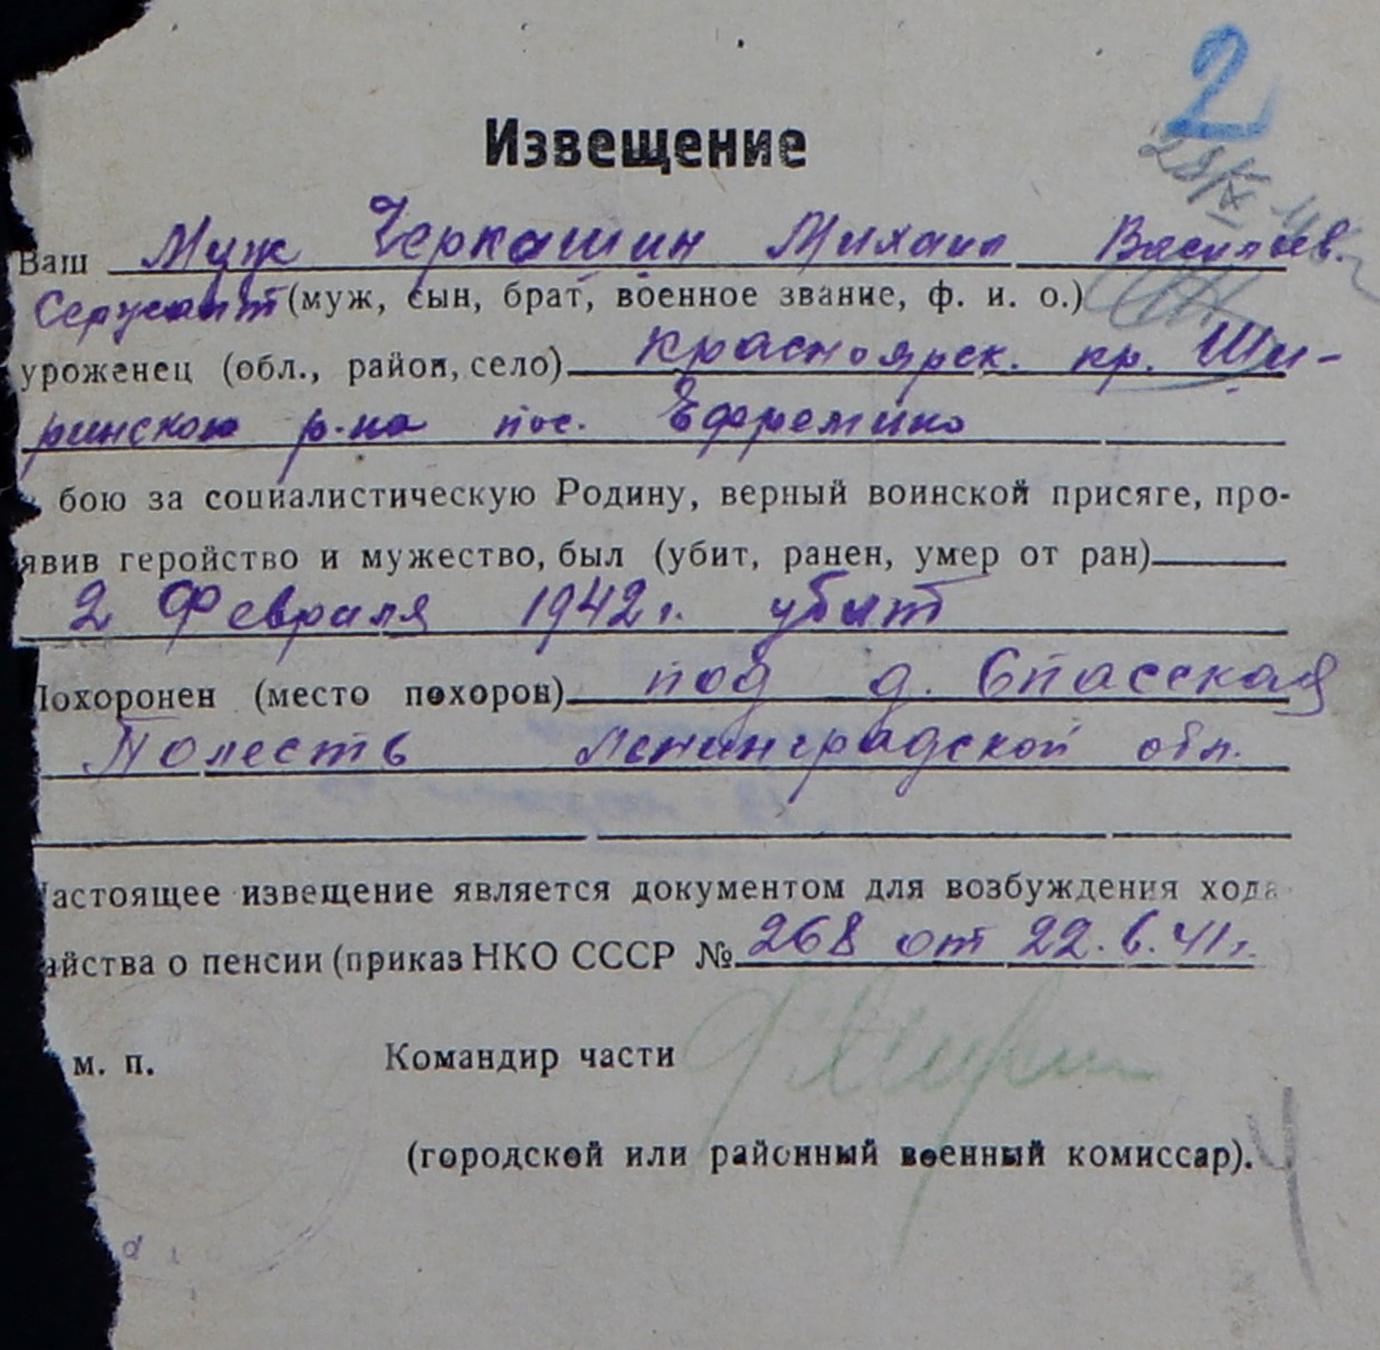 2
Извещение
Ваш Муж Черкашин Михаил Васильев.
Сержант (муж, сын, брат, военное звание, ф. и. о.)
уроженец (обл., район, село) Красноярск. кр. Ши-
ринского р-на пос. Ефремкино
бою за социалистическую Родину, верный воинской присяге, про-
явив геройство и мужество, был (убит, ранен, умер от ран)
2 Февраля 1942 г. убит
Похоронен (место похорон) под д. Спасская
Полесть Ленинградской обл.
Настоящее извещение является документом для возбуждения хода
айства о пенсии (приказ НКО СССР № 268 от 22.6.41 г.
м. п. Командир части
(городской или районный военный комиссар).